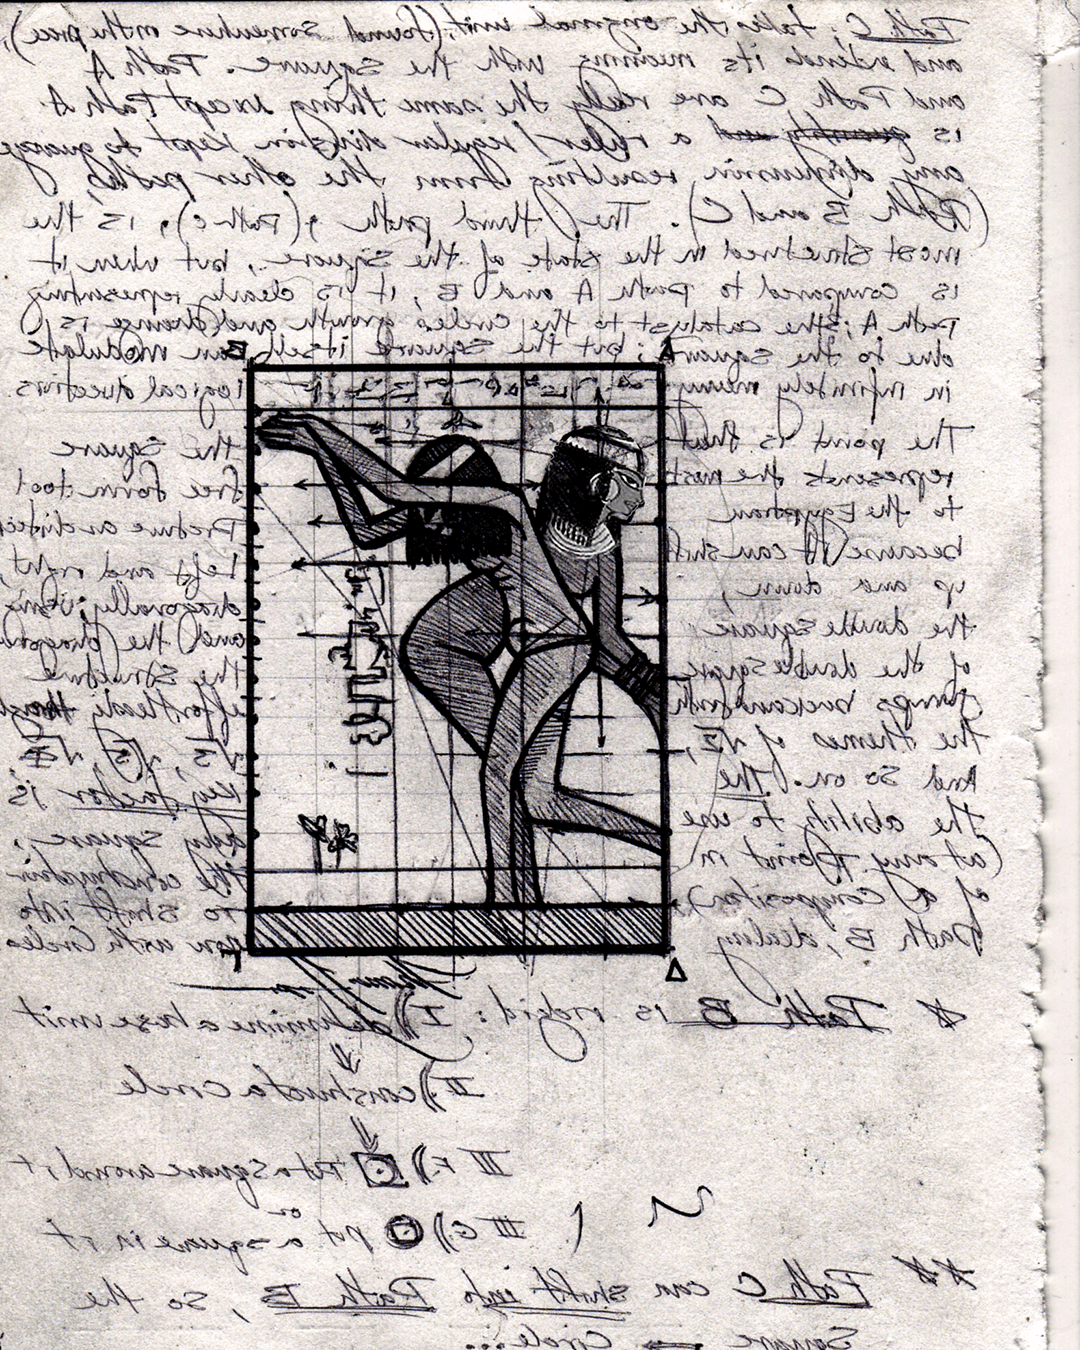 Path C: takes the original unit, (found somewhere on the piece),
and extends its meaning with the square. Path A
and Path C are really the same thing except Path A
is a ruler/regular division kept to guage
any dispersion resulting from the other paths,
(Path B and C). The third path, (path c), is the
most structured in the state of the square, but when it
is compared to path A and B, it is clearly representing
path A; the catalyst to the circles growth and change is
due to the square; but the square itself can modulate
in infinitely many logical directions.
The point is that the square
represents the most free form tool
to the Egyptian
because it can shift Left and right,
up and down, diagonally; using
the double square and the
of the double square the structure
jumps back and forth effortlessly through
the themes of √2, √3, √5,
And so on. The key factor is
the ability to use any square,
(at any Point in the construction
of a composition) to shift into
Path B, dealing with Circles
A
B
Δ
* Path B is rigid: I) determine a base unit
II) construct a circle
III F.) Put a square around it
or
III G) put a square in it
** Path C can shift into Path B, so the
Square Circle...